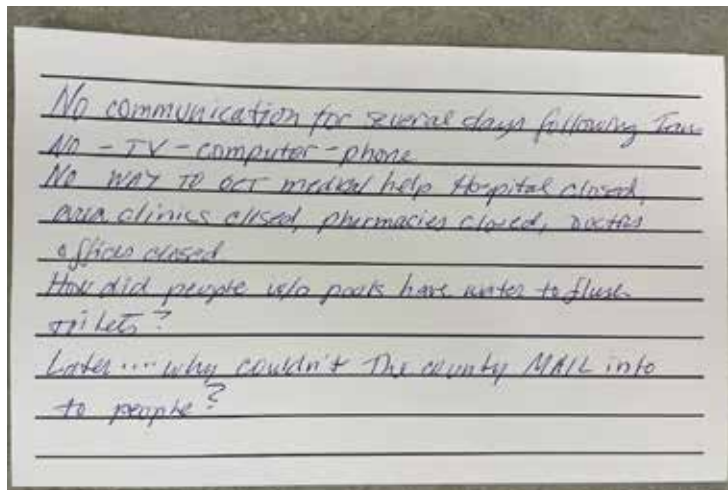 No communication for several days following Ian
No - TV - computer - phone
No WAY TO GET medical help Hospital closed,
area clinics closed, pharmacies closed, Doctors
offices closed
How did people w/o pools have water to flush
toilets?
Later.... why couldn't The county MAIL info
to people?